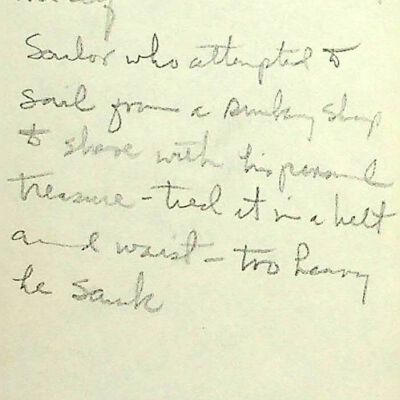 Sailor who attempted to
sail from a sinking ship
to shore with his personal
treasure - tied it in a belt
and waist - too heavy
he sank